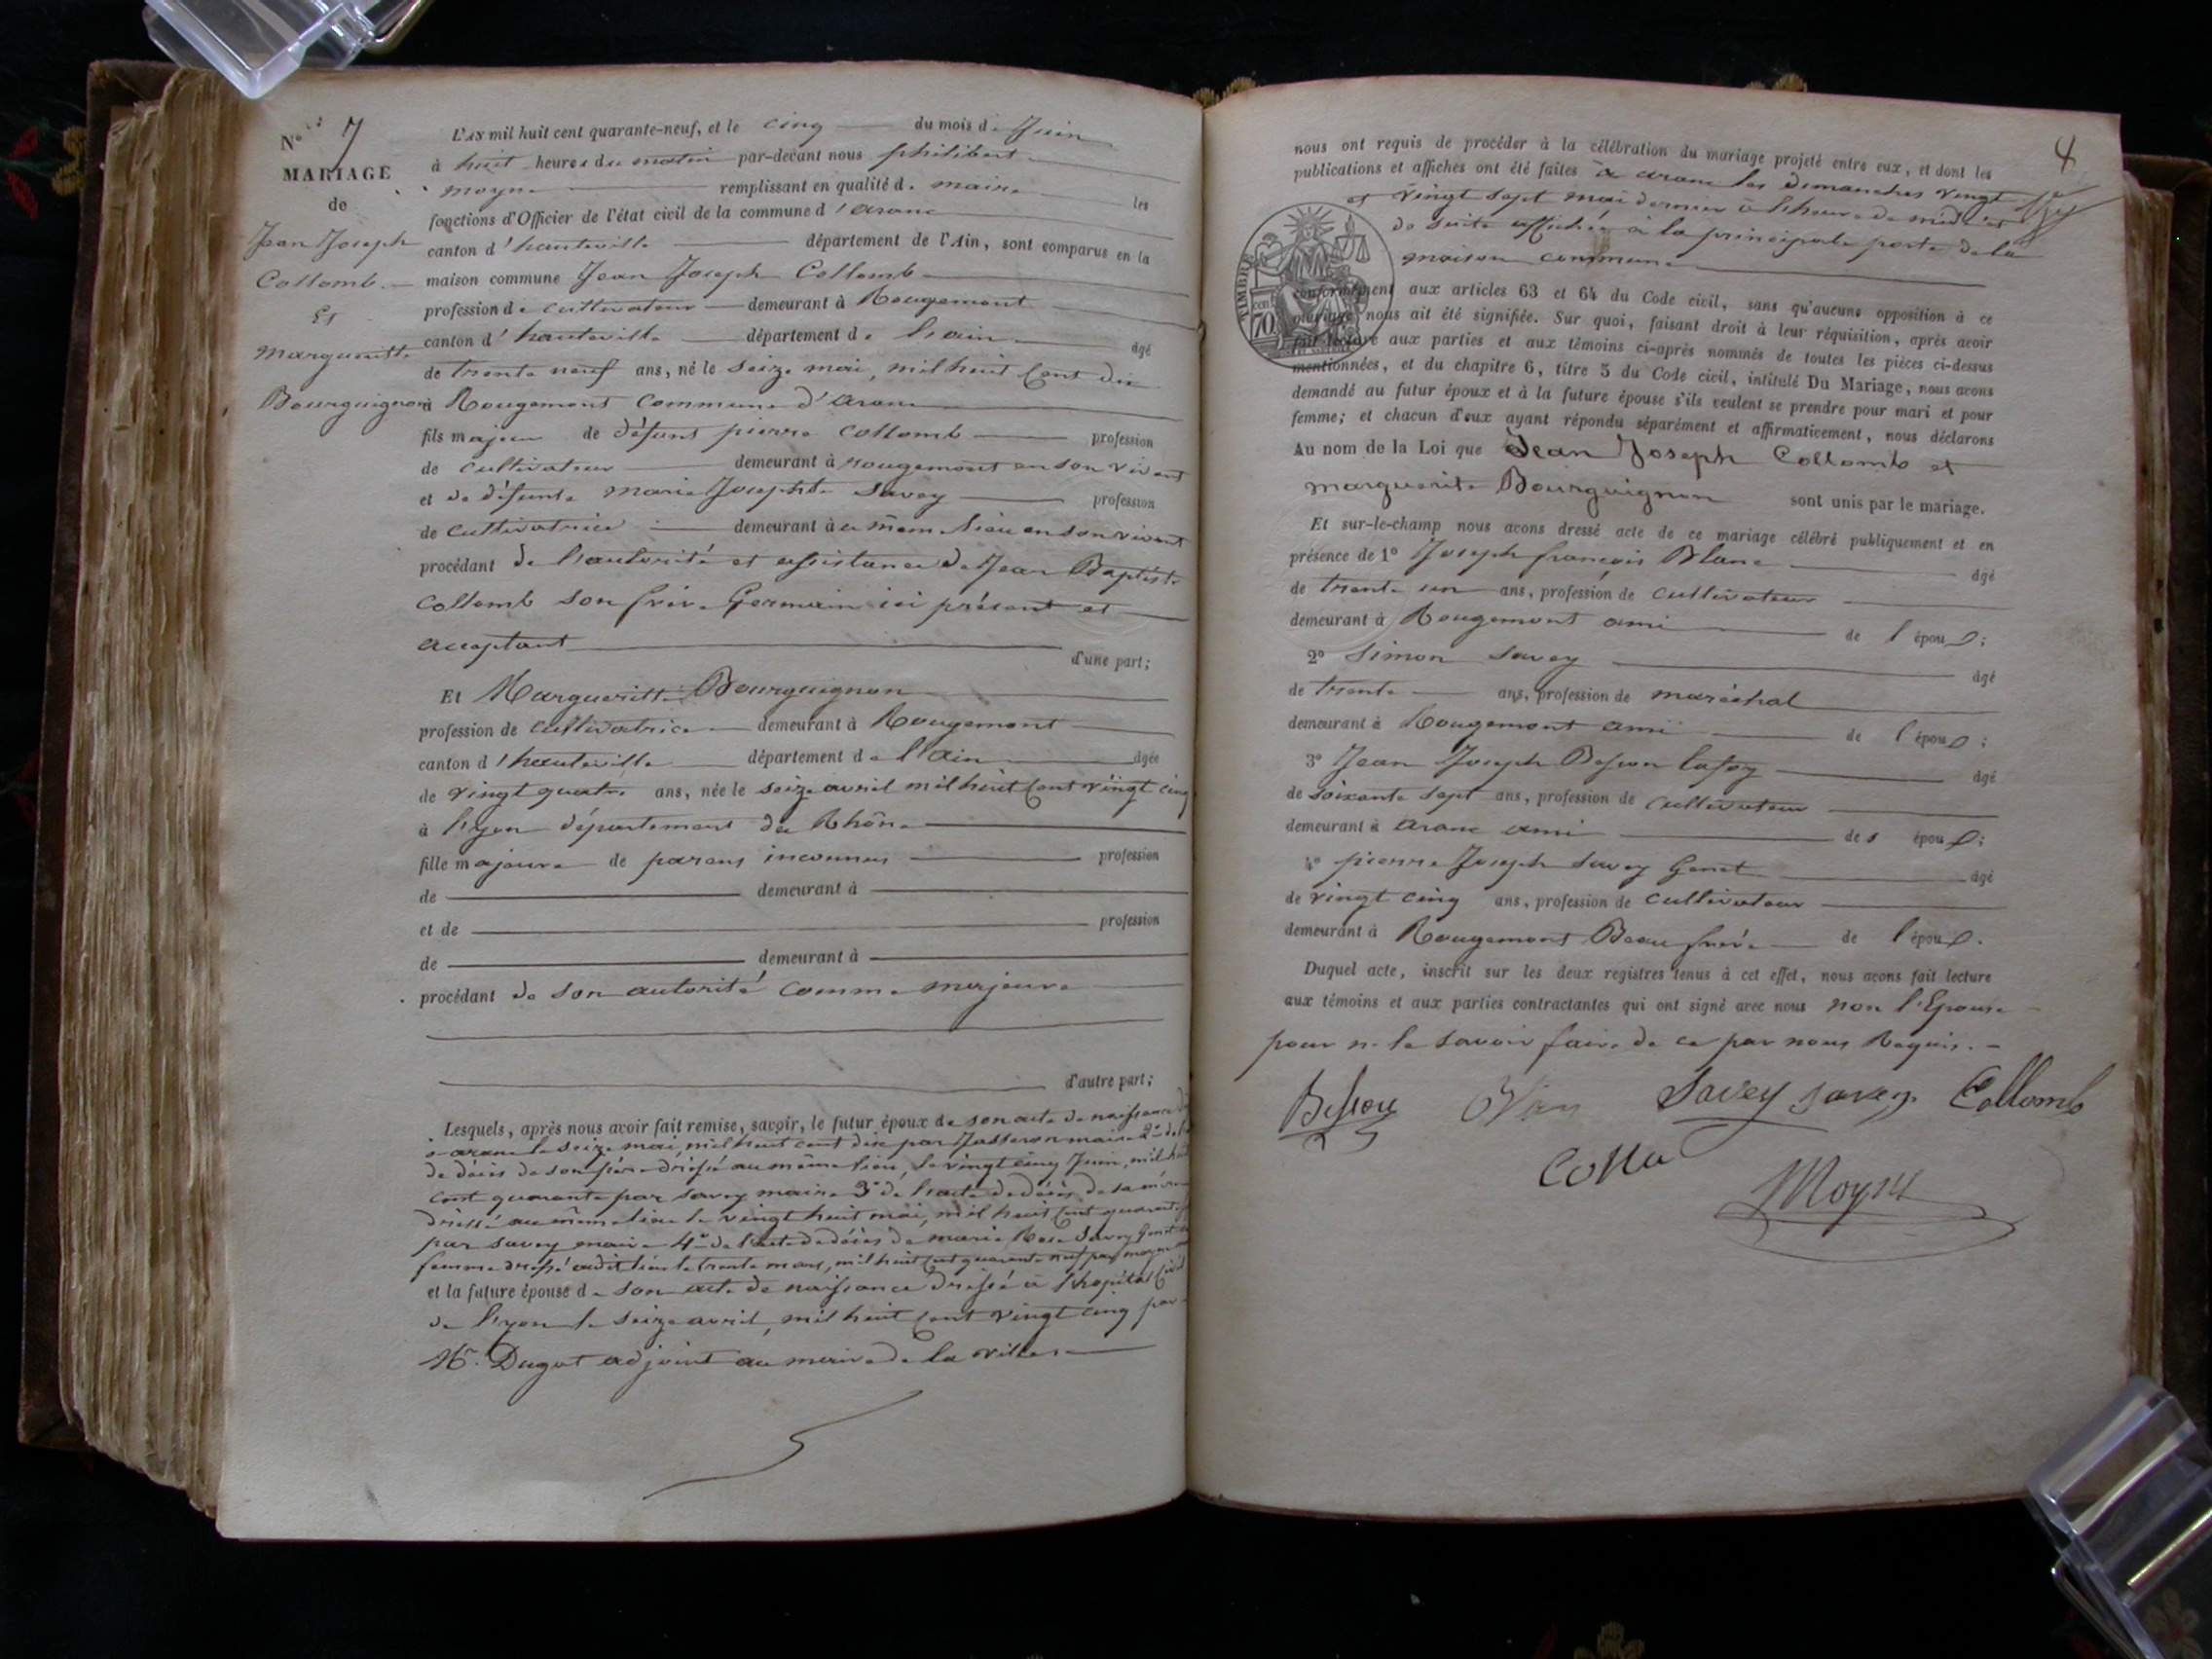 N° 7
MARIAGE
de
Jean Joseph
Collomb
Et
Margueritte
Bourguignon
L'AN mil huit cent quarante-neuf, et le cinq du mois de Juin
à huit heures du matin par-devant nous philibert
moyne remplissant en qualité de maire les
fonctions d'Officier de l'état civil de la commune d'aranc
canton d'hauteville département de l'Ain, sont comparus en la
maison commune Jean Joseph Collomb
profession de cultivateur demeurant à Rougemont
canton d'hauteville département de l'ain âgé
de trente neuf ans, né le seize mai, mil huit Cent dix
à Rougemont Commune d'aranc
fils majeur de défunt pierre Collomb profession
de cultivateur demeurant à rougemont en son vivant
et de défunte marie Josephte Savey profession
de cultivatrice demeurant à ce même lieu en son vivant
procédant de l'autorité et assistance de Jean Baptiste
Collomb son frère Germain ici présent et
acceptant d'une part;
Et Margueritte Bourguignon
profession de cultivatrice demeurant à Rougemont
canton d'hauteville département de l'Ain âgée
de vingt quatre ans, née le seize avril mil huit Cent vingt cinq
à l'yon département du Rhône
fille majeure de parens inconnus profession
de demeurant à
et de profession
de demeurant à
procédant de son autorité comme majeure
d'autre part;
Lesquels, après nous avoir fait remise, savoir, le futur époux de son acte de naissance
a aranc le seize mai, mil huit cent dix par Jasseron maire 2° de
de décès de son père dréssé au même lieu, le vingt cinq Juin, mil huit
Cent quarante par Savey maire 3° de l'acte de décès de sa mère
dréssé au même lieu le vingt huit mai, mil huit Cent quarante
par Savey maire 4° de l'acte de décès de marie Rose Savey Genet
femme dréssé audit lieu le trente mars, mil huit Cent quarante neuf par moyne
et la future épouse de son acte de naissance dréssé à l'hopital Civil
de l'yon le seize avril, mil huit Cent vingt cinq par
Mr. Dugat adjoint au maire de la ville
4
nous ont requis de procéder à la célébration du mariage projeté entre eux, et dont les
publications et affiches ont été faites à aranc les dimanches vingt
et vingt sept mai dernier à l'heure de midi et
de suite affichée à la principale porte de la
maison commune
TIMBRE
70
conformément aux articles 63 et 64 du Code civil, sans qu'aucune opposition à ce
mariage nous ait été signifiée. Sur quoi, faisant droit à leur réquisition, après avoir
fait lecture aux parties et aux témoins ci-après nommés de toutes les pièces ci-dessus
mentionnées, et du chapitre 6, titre 5 du Code civil, intitulé Du Mariage, nous avons
demandé au futur époux et à la future épouse s'ils veulent se prendre pour mari et pour
femme; et chacun d'eux ayant répondu séparément et affirmativement, nous déclarons
Au nom de la Loi que Jean Joseph Collomb et
marguerite Bourguignon sont unis par le mariage.
Et sur-le-champ nous avons dressé acte de ce mariage célébré publiquement et en
présence de 1° Joseph françois Blanc âgé
de trente un ans, profession de cultivateur
demeurant à Rougemont ami de l'époux;
2° Simon Savey âgé
de trente ans, profession de maréchal
demeurant à Rougemont ami de l'époux;
3° Jean Joseph Besson lafoy âgé
de soixante sept ans, profession de cultivateur
demeurant à aranc ami des époux;
4° pierre Joseph Savey Genet âgé
de vingt cinq ans, profession de cultivateur
demeurant à Rougemont Beau frère de l'époux.
Duquel acte, inscrit sur les deux registres tenus à cet effet, nous avons fait lecture
aux témoins et aux parties contractantes qui ont signé avec nous non l'Epouse
pour ne le savoir faire de ce par nous Requis.
Besson Savey Savey Collomb
Moyne